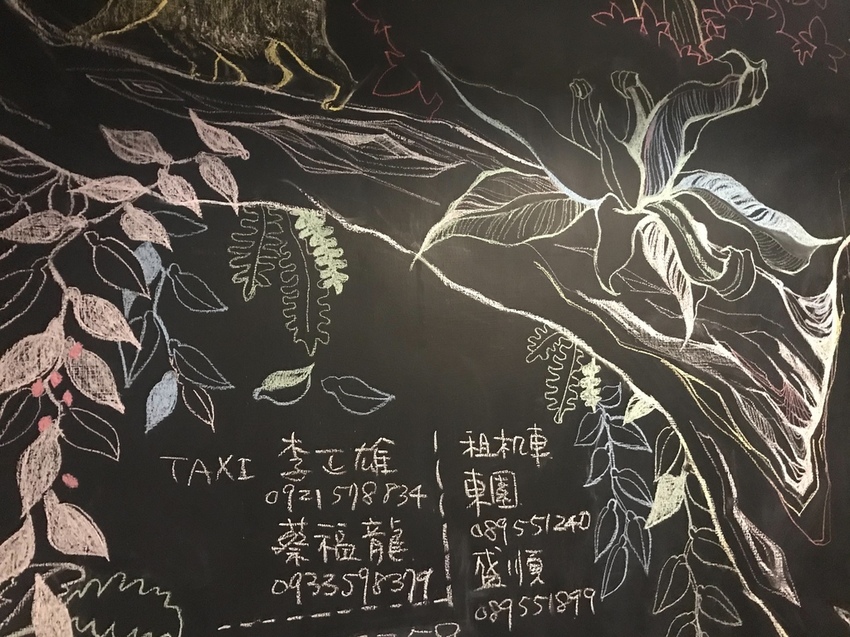 TAXI 李正雄
0921578834
蔡福龍
0933598379
租机車
東團
089551240
盛順
089551899